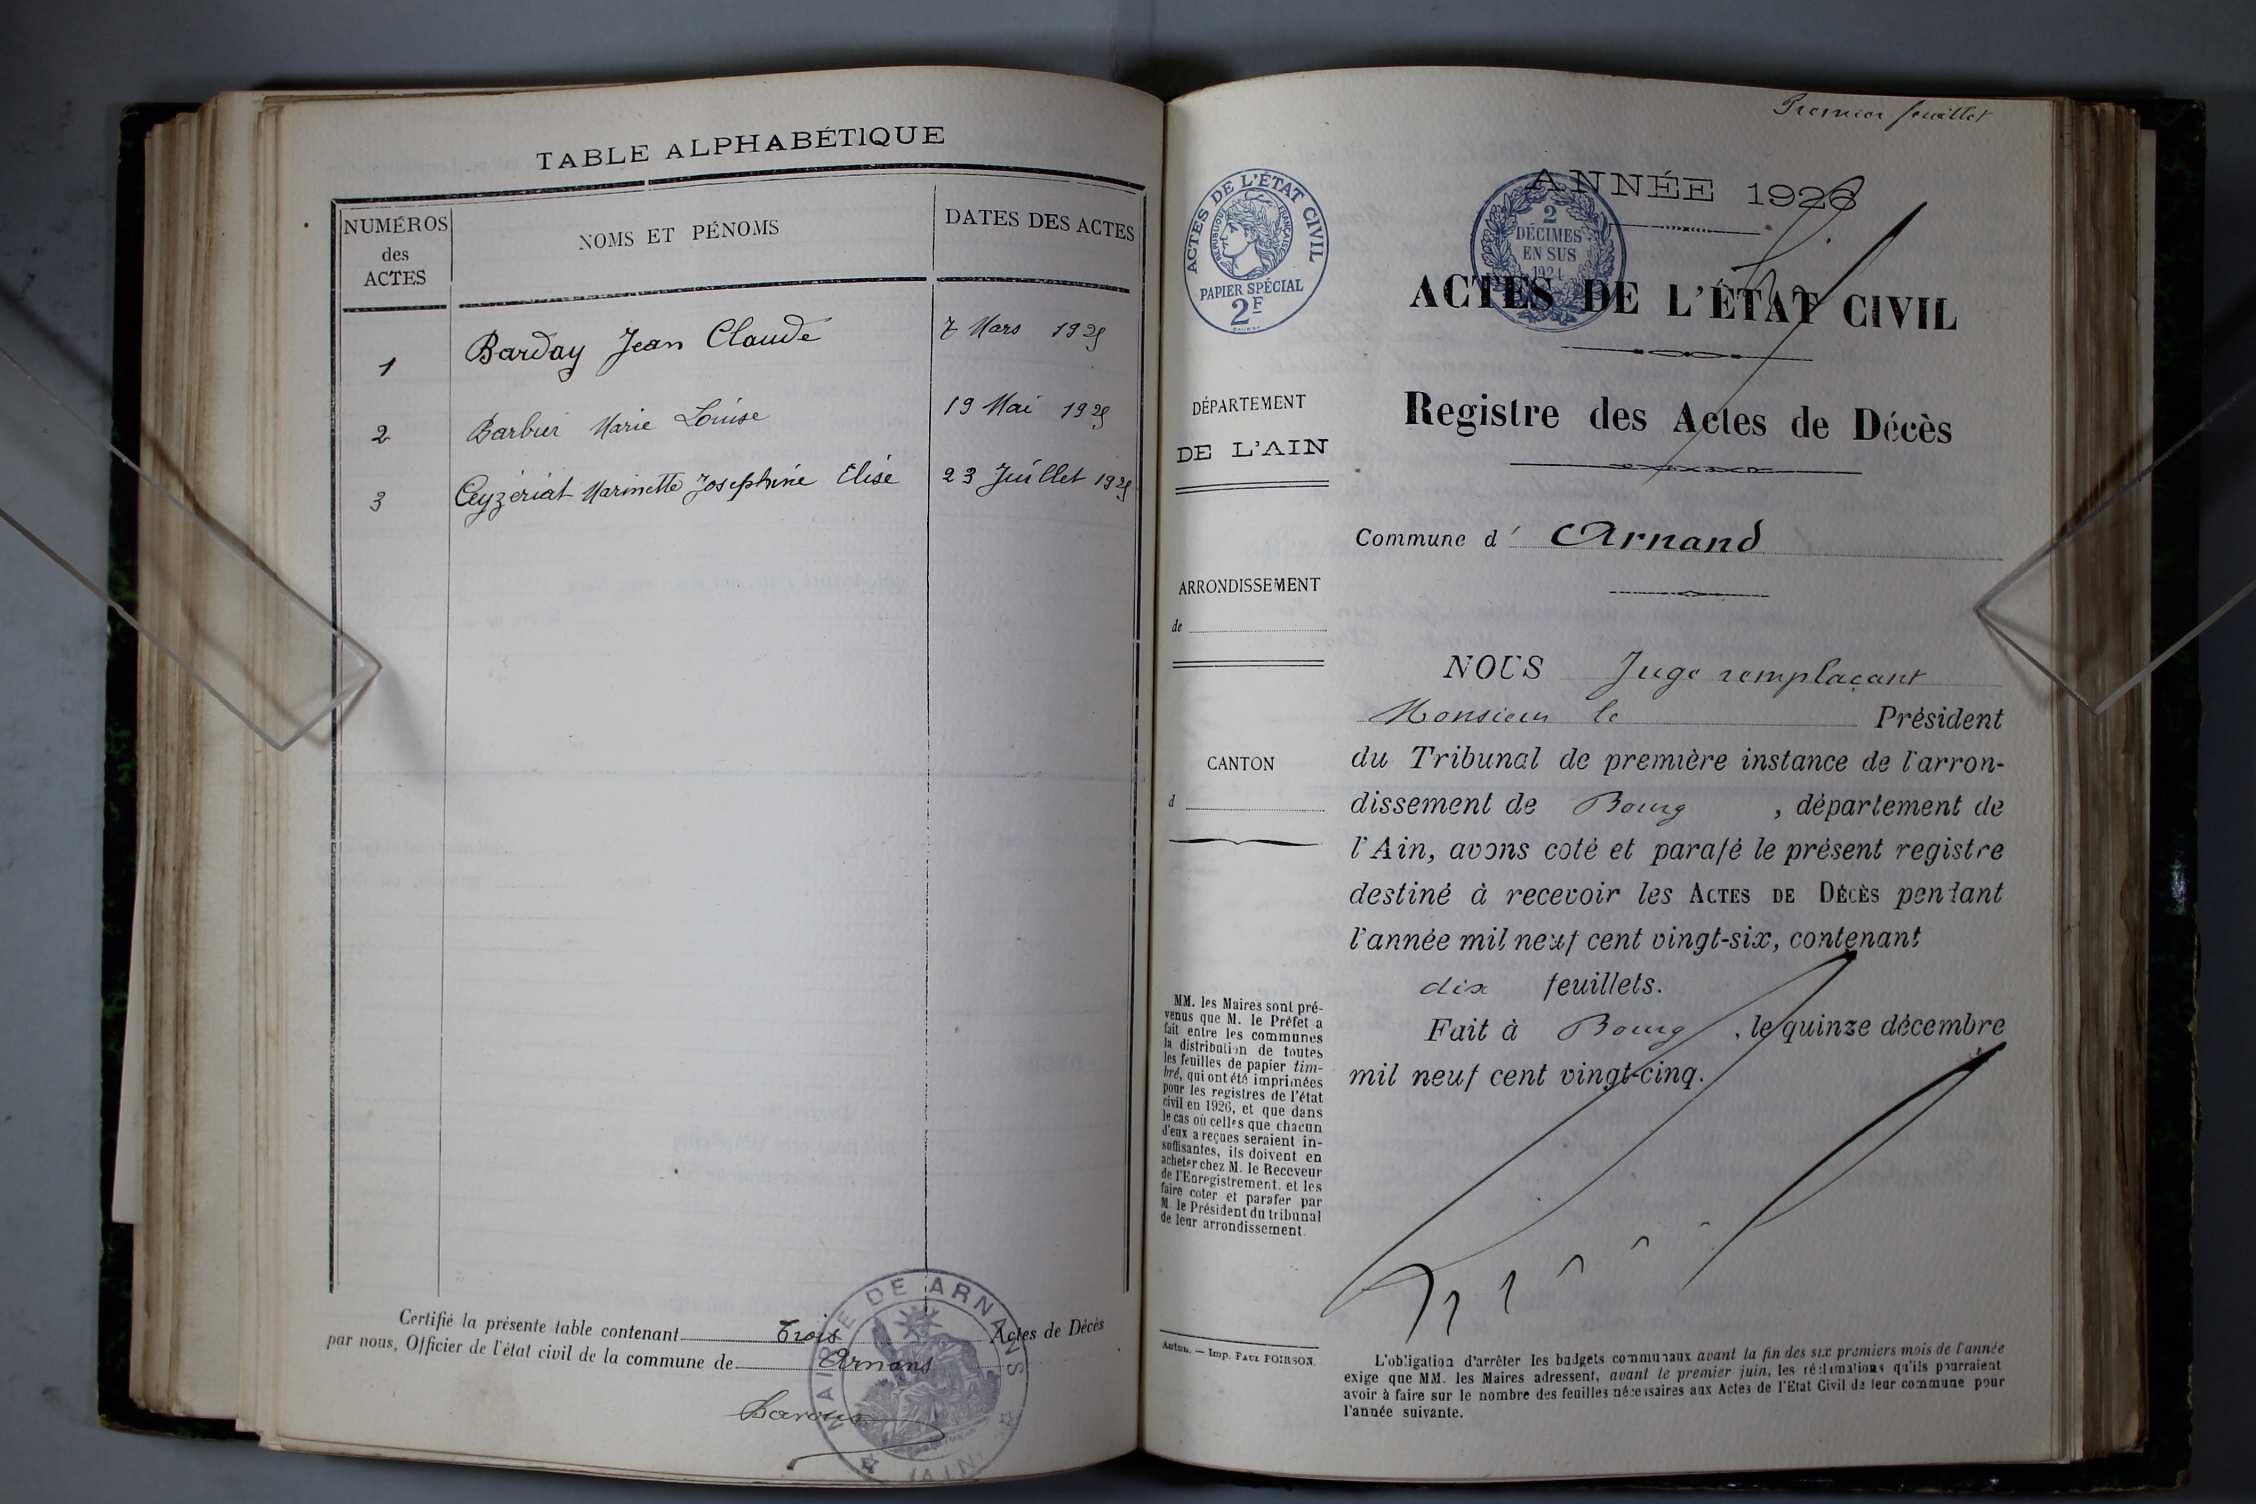 TABLE ALPHABÉTIQUE
NUMÉROS
des
ACTES
NOMS ET PÉNOMS
DATES DES ACTES
1 Barday Jean Claude 7 Mars 1925
2 Barbier Marie Louise 19 Mai 1925
3 Ceyzériat Marinette Josephine Elise 23 Juillet 1925
Certifié la présente table contenant Trois Actes de Décès
par nous, Officier de l'état civil de la commune de Arnans
MAIRIE DE ARNANS
(AIN)
Premier feuillet
ACTES DE L'ÉTAT CIVIL
RÉPUBLIQUE FRANÇAISE
PAPIER SPÉCIAL
2F
2
DÉCIMES
EN SUS
1924
ANNÉE 1926
ACTES DE L'ÉTAT CIVIL
Registre des Actes de Décès
DÉPARTEMENT
DE L'AIN
Commune d' Arnand
ARRONDISSEMENT
de
CANTON
d
NOUS Juge remplaçant
Monsieur le Président
du Tribunal de première instance de l'arron-
dissement de Bourg , département de
l'Ain, avons coté et parafé le présent registre
destiné à recevoir les ACTES DE DÉCÈS pendant
l'année mil neuf cent vingt-six, contenant
dix feuillets.
Fait à Bourg , le quinze décembre
mil neuf cent vingt-cinq.
MM. les Maires sont pré-
venus que M. le Préfet a
fait entre les communes
la distribution de toutes
les feuilles de papier tim-
bré, qui ont été imprimées
pour les registres de l'état
civil en 1926, et que dans
le cas où celles que chacun
d'eux a reçues seraient in-
suffisantes, ils doivent en
acheter chez M. le Receveur
de l'Enregistrement. et les
faire coter et parafer par
M. le Président du tribunal
de leur arrondissement.
Autun. — Imp. PAUL POIRSON.
L'obligation d'arrêter les budgets communaux avant la fin des six premiers mois de l'année
exige que MM. les Maires adressent, avant le premier juin, les réclamations qu'ils pourraient
avoir à faire sur le nombre des feuilles nécessaires aux Actes de l'Etat Civil de leur commune pour
l'année suivante.